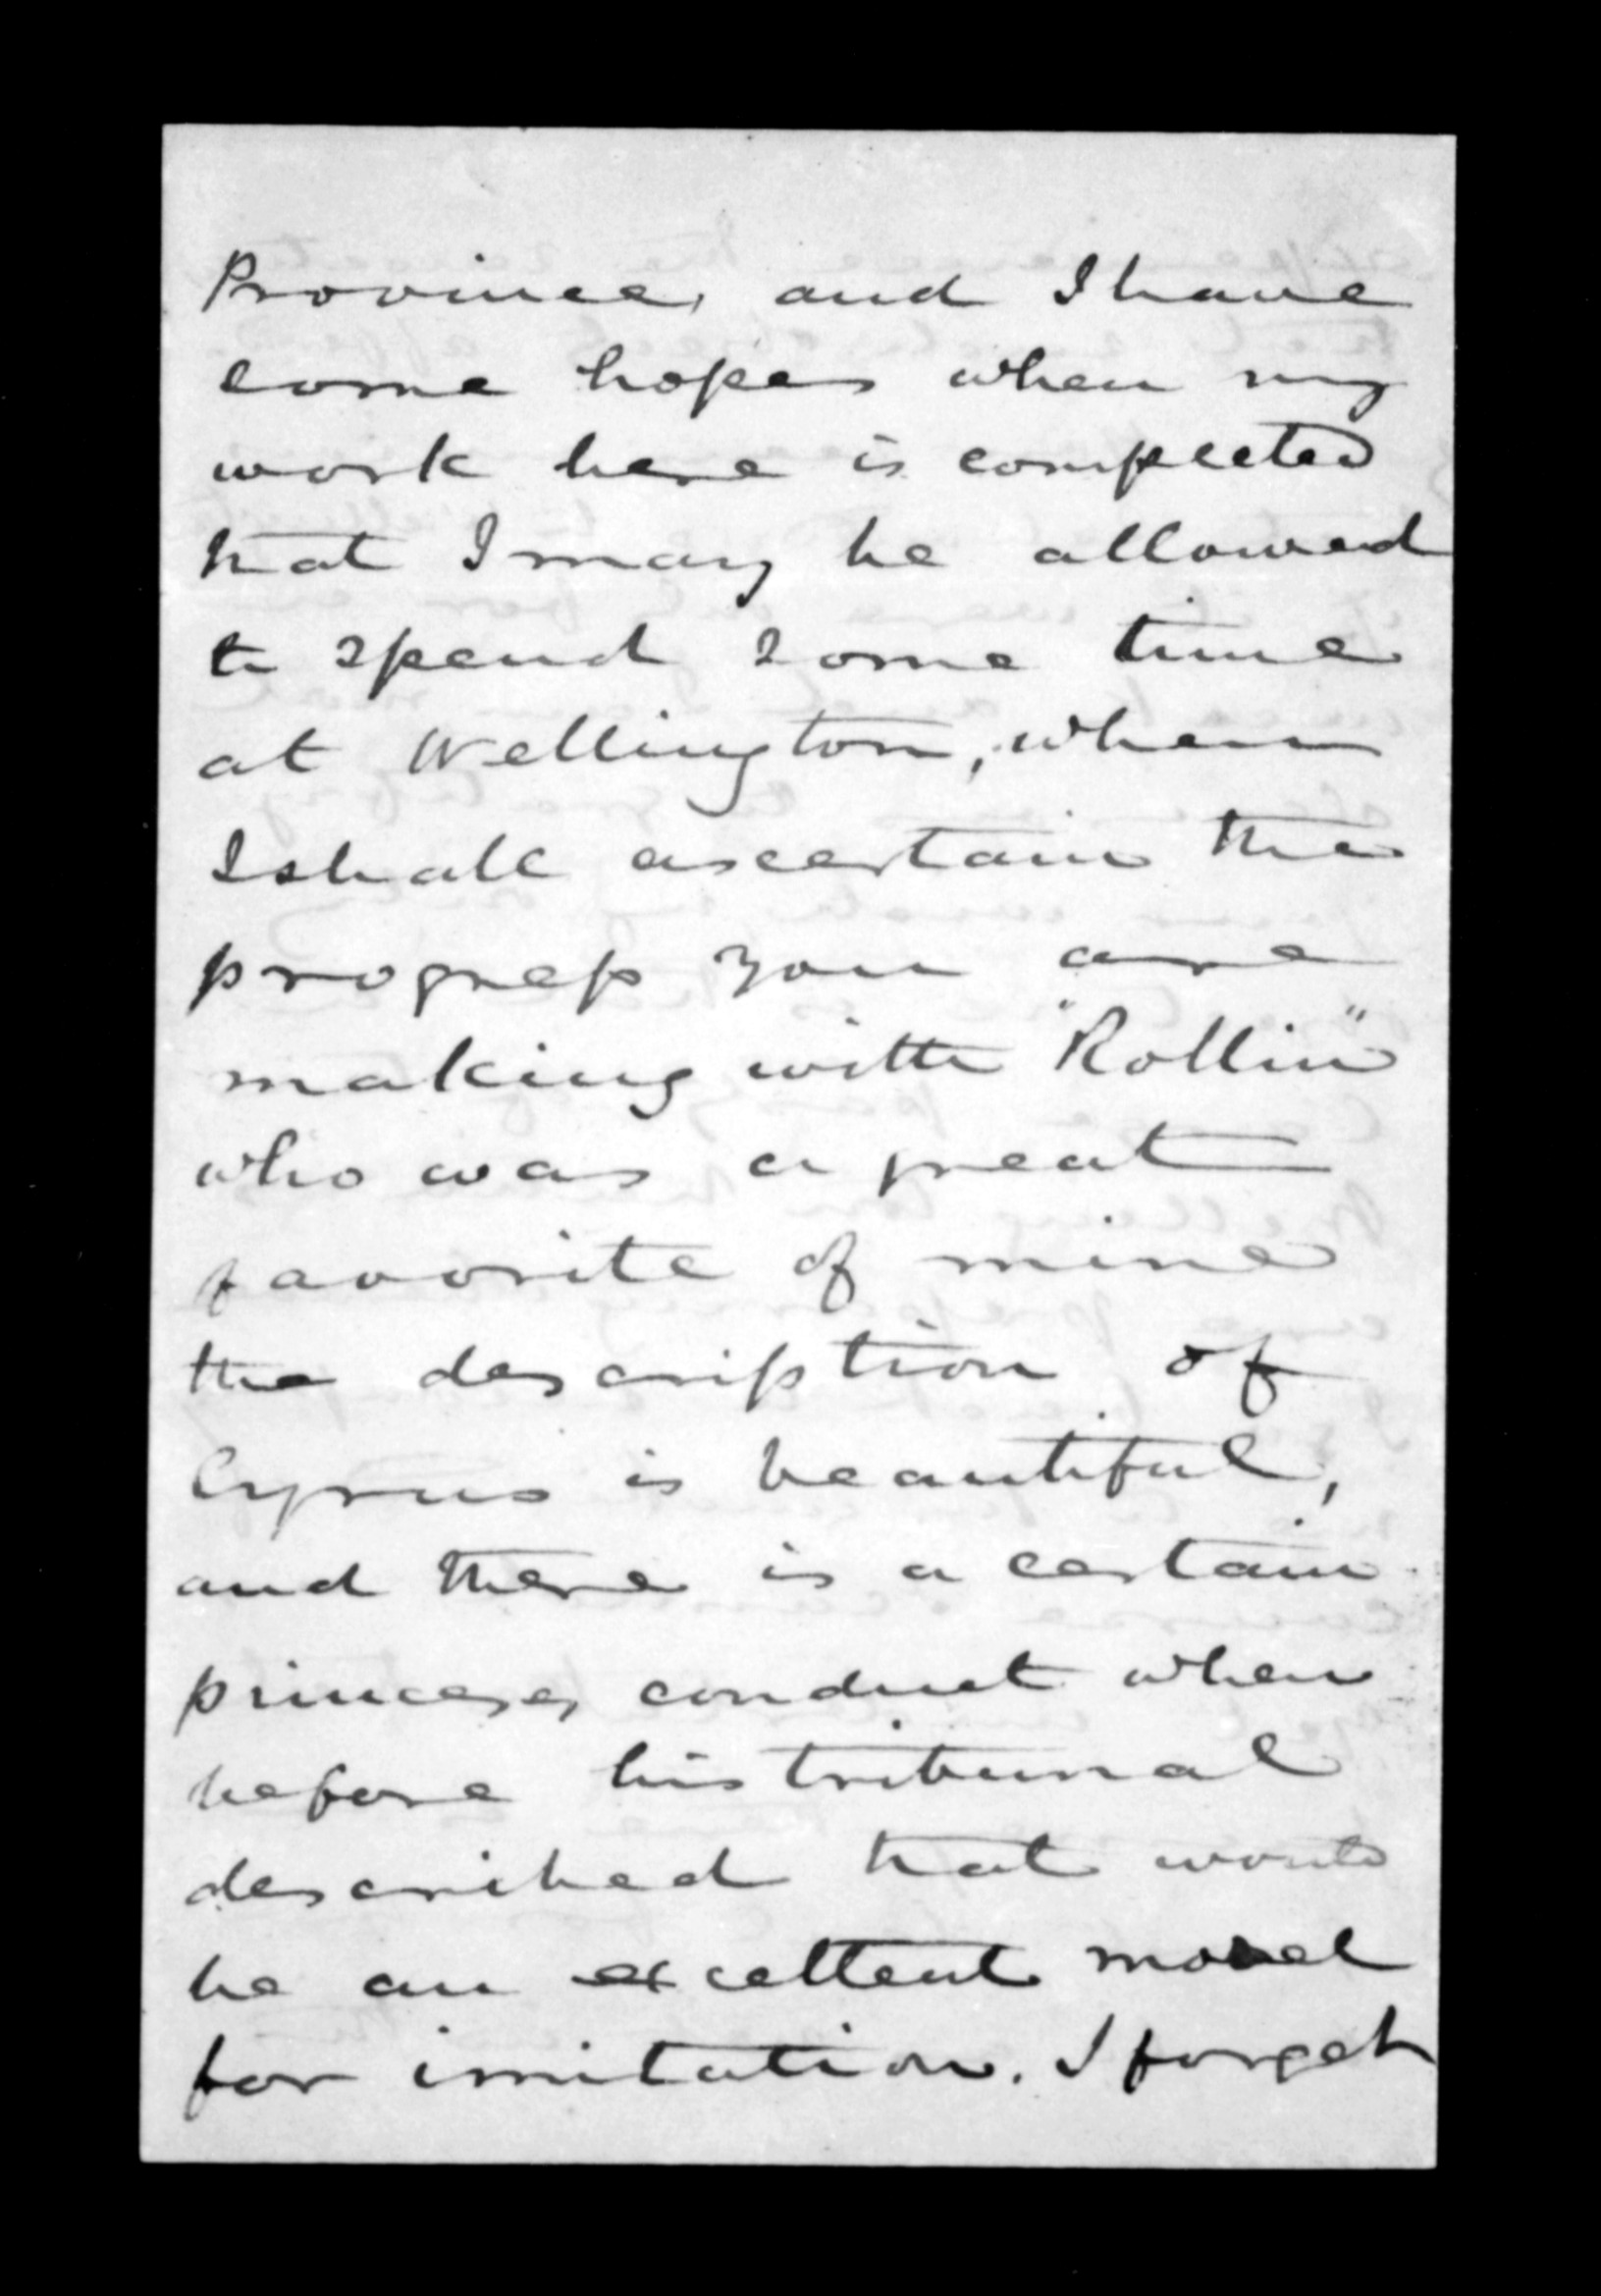 Province, and I have
some hopes when my
work here is completed
that I may be allowed
to spend some time
at Wellington, when
I shall ascertain the
progress you are
making with "Rollin"
who was a great
favorite of mine
the description of
Cyrus is beautiful,
and there is a certain
princess, conduct when
before his tribunal
described that would
be an excellent model
for imitation. I forget